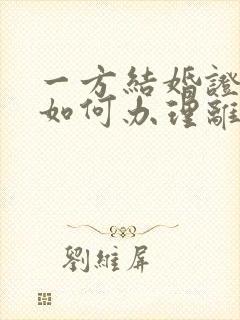 一方結婚證
如何办理離
劉維屏